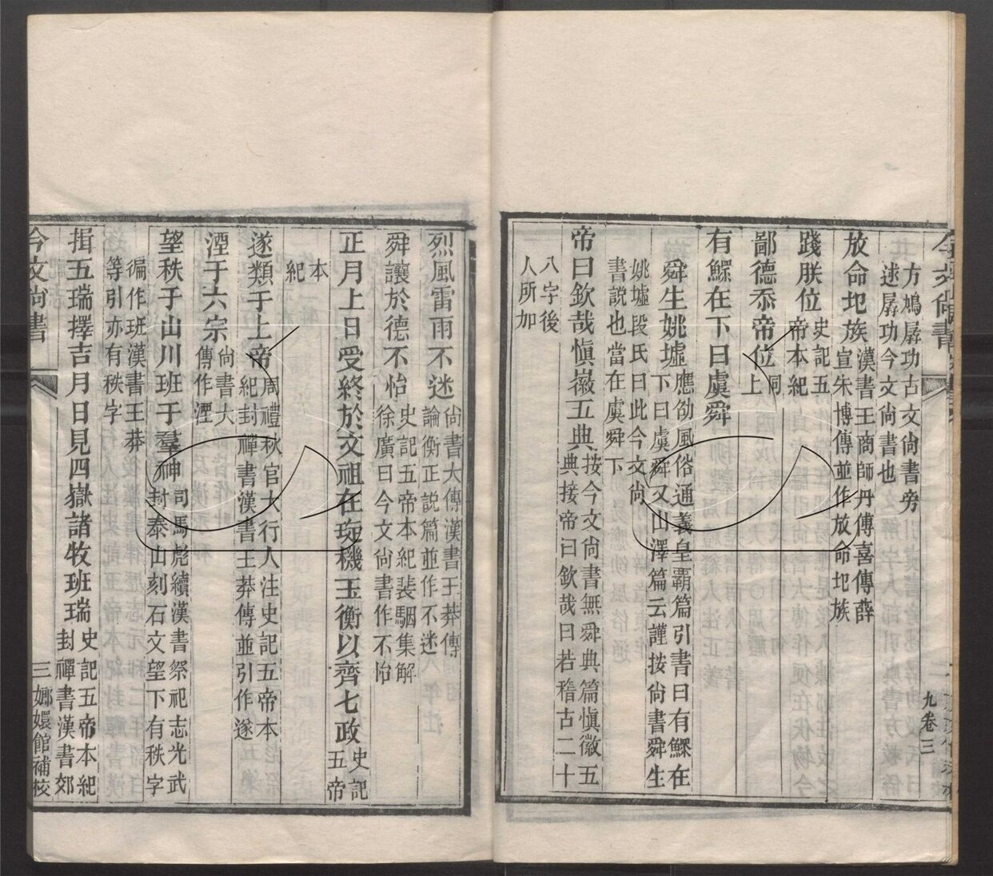 今文尚書
方鳩孱功古文尚書旁
述孱功今文尚書也
放命圯族漢書王商師丹傅喜傳薛
宣朱博傳並作放命圯族
踐朕位史記五
帝本紀
鄙德忝帝位同
上
有鰥在下曰虞舜
舜生姚墟應劭風俗通義皇霸篇引書曰有鰥在
下曰虞舜又山澤篇云謹按尚書舜生
姚墟段氏曰此今文尚
書說也當在虞舜下
帝曰欽哉慎徽五典按今文尚書無舜典篇慎徽五
典接帝曰欽哉曰若稽古二十
八字後
人所加
九卷三
烈風雷雨不迷尚書大傳漢書王莽傳
論衡正說篇並作不迷
舜讓於德不怡史記五帝本紀裴駰集解
徐廣曰今文尚書作不怡
正月上日受終於文祖在琁機玉衡以齊七政史記
五帝
本
紀
遂類于上帝周禮秋官大行人注史記五帝本
紀封禪書漢書王莽傳並引作遂
湮于六宗尚書大
傳作湮
望秩于山川班于羣神司馬彪續漢書祭祀志光武
封泰山刻石文望下有秩字
徧作班漢書王莽
等引亦有秩字
揖五瑞擇吉月日見四嶽諸牧班瑞史記五帝本紀
封禪書漢書郊
今文尚書
三
嫏嬛館補校